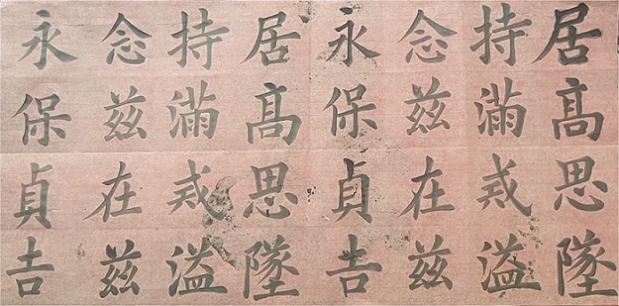 居髙思墜
持滿戒溢
念茲在茲
永保貞吉
居髙思墜
持滿戒溢
念茲在茲
永保貞吉